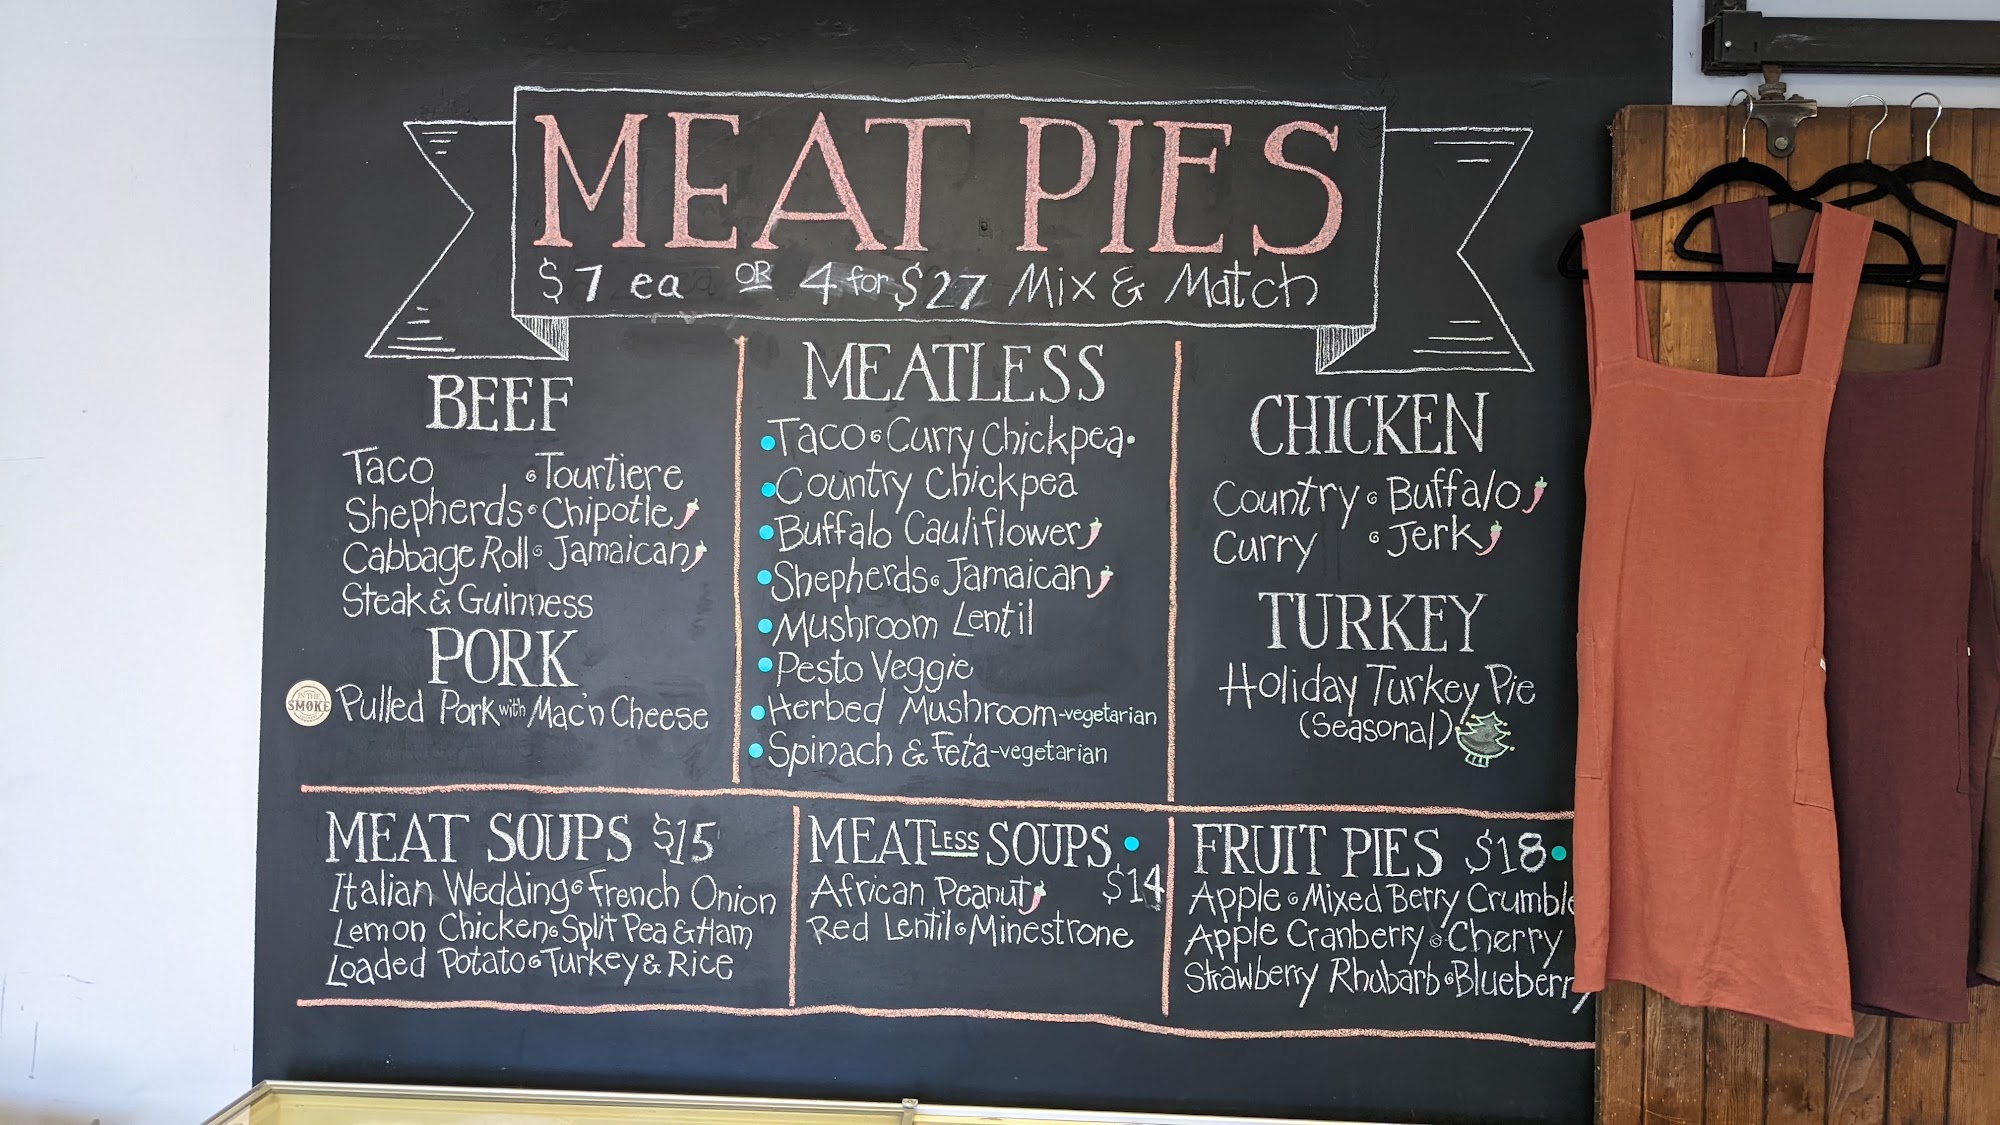 MEAT PIES
$7 ea OR 4 for $27 Mix & Match
BEEF
Taco • Tourtiere
Shepherds • Chipotle
Cabbage Roll • Jamaican
Steak & Guinness
PORK
IN THE
SMOKE
Pulled Pork with Mac'n Cheese
MEATLESS
• Taco • Curry Chickpea •
• Country Chickpea
• Buffalo Cauliflower
• Shepherds • Jamaican
• Mushroom Lentil
• Pesto Veggie
• Herbed Mushroom - vegetarian
• Spinach & Feta - vegetarian
CHICKEN
Country • Buffalo
Curry • Jerk
TURKEY
Holiday Turkey Pie
(Seasonal)
MEAT SOUPS $15
Italian Wedding • French Onion
Lemon Chicken • Split Pea & Ham
Loaded Potato • Turkey & Rice
MEATLESS SOUPS •
$14
African Peanut
Red Lentil • Minestrone
FRUIT PIES $18 •
Apple • Mixed Berry Crumble
Apple Cranberry • Cherry
Strawberry Rhubarb • Blueberry